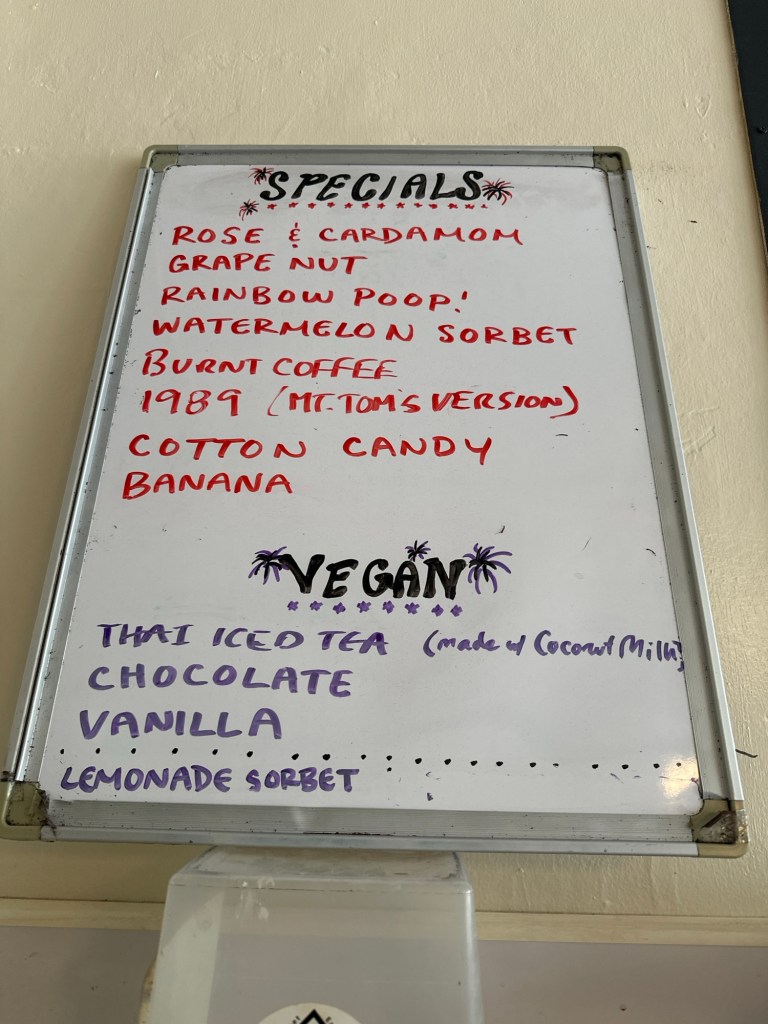 SPECIALS
ROSE & CARDAMOM
GRAPE NUT
RAINBOW POOP!
WATERMELON SORBET
BURNT COFFEE
1989 (MT. TOM'S VERSION)
COTTON CANDY
BANANA
VEGAN
THAI ICED TEA (made w/ Coconut Milk)
CHOCOLATE
VANILLA
LEMONADE SORBET